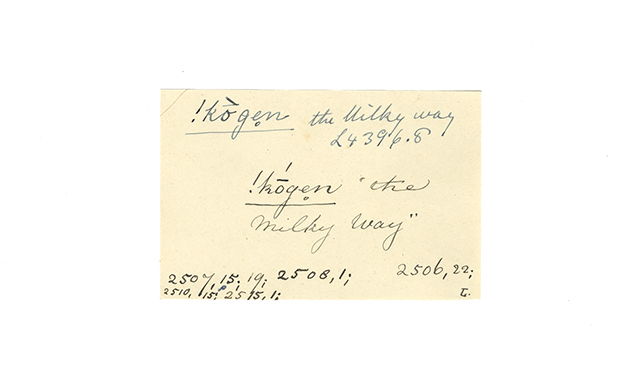 !kṓgẹn the Milky way
L4396.8
!kṓgẹn "the
Milky Way"
2507, 15; 19; 2508, 1; 2506, 22;
2510, 2515, 1; L.